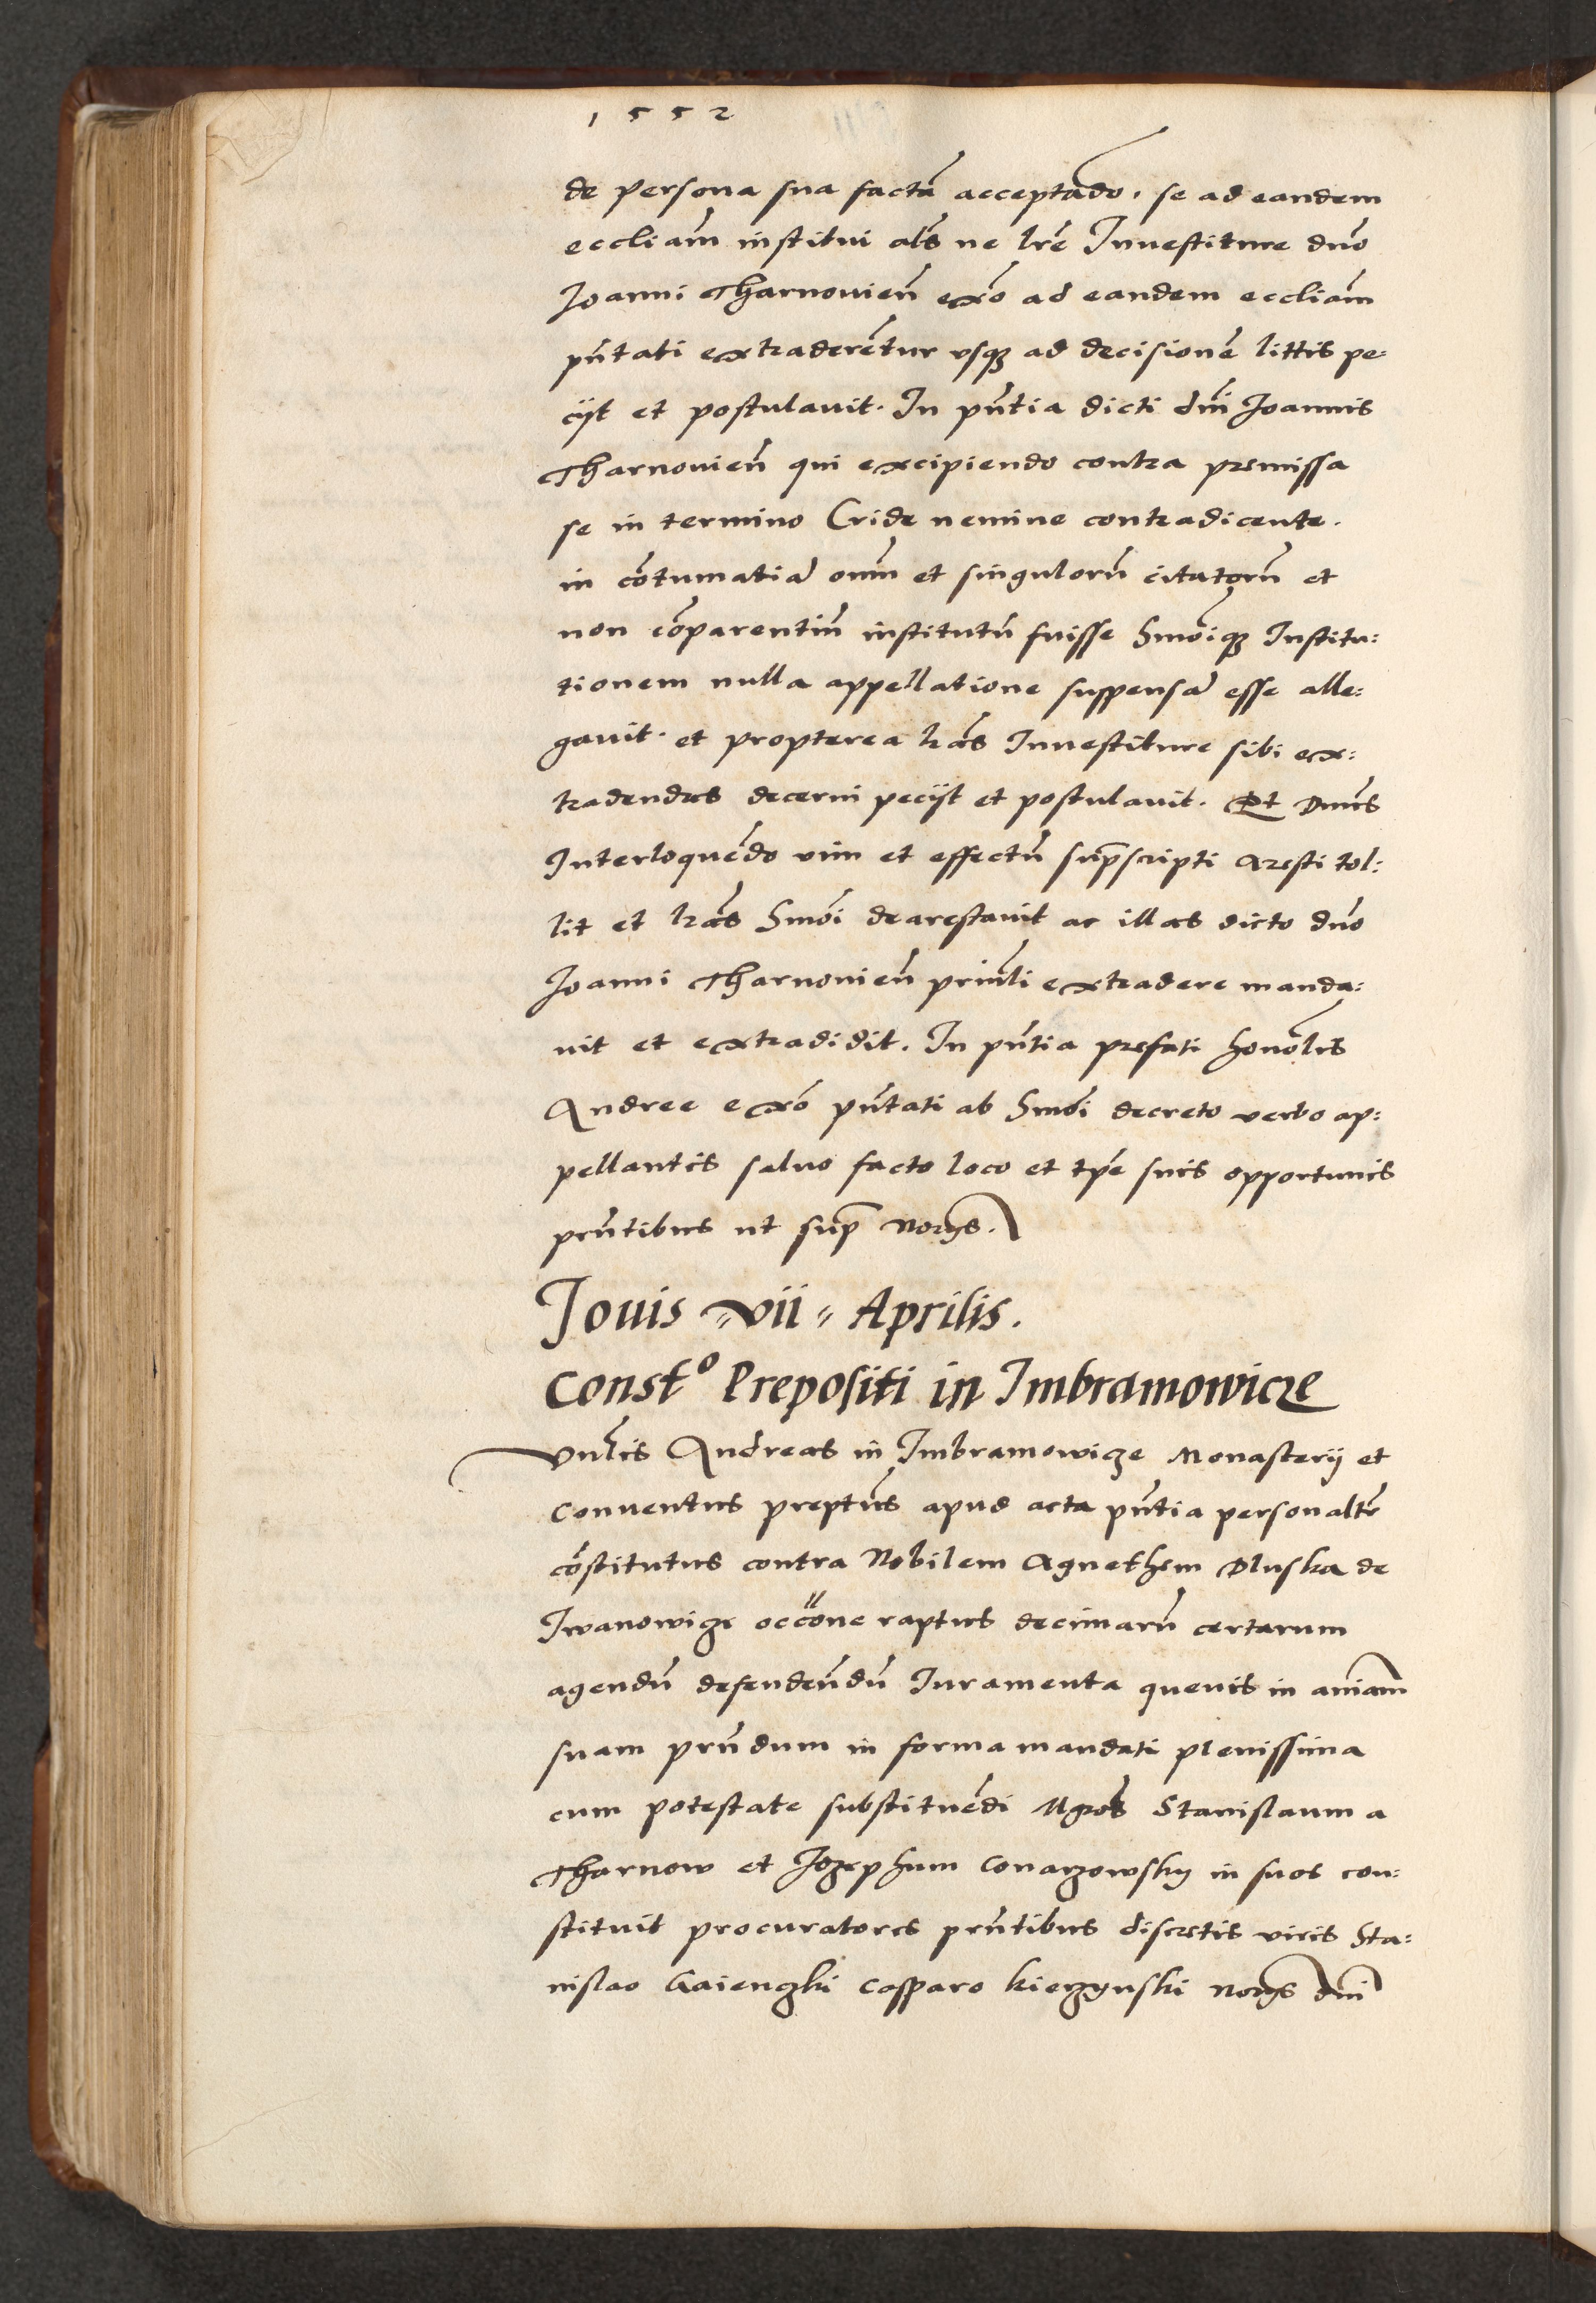 1552
de persona sua factã acceptãdo. se ad eandem
eccliam̃ institui als̃ ne lrẽ Inuestiture dnõ
Joanni Tharnouien̄ exõ ad eandem eccliam̃
pñtati extraderẽtur vsq3 ad decisionẽ littis pe:
cijt et postulauit. In pñtia dicti dñi Joannis
Tharnouien̄ qui excipiendo contra premissa
se in termino Cride nemine contradicente.
in cõtumatiã oniũ et singulorũ citatorũ et
non cõparentiũ institutũ fuisse Smõiq3 Institu:
tionem nulla appellatione suspensã esse alle:
gauit. et propterea lrãs Inuestiture sibi ex:
tradendas decerni pecijt et postulauit. Et Dnũs
Interloquẽdo vim et effectũ sup̃scripti aresti tol:
lit et lrãs Smõi dearestauit ac illas dicto dnõ
Joanni Tharnouien̄ prinĩli extradere manda:
uit et extradidit. In pñtia prefati honõlis
Andree exõ pñtati ab Smõi decreto verbo ap:
pellantis saluo facto loco et tp̃e suis opportunis
prñtibus ut sup̃ Norijs.
Jouis vii Aprilis.
Const⁰ Prepositi in Imbramowicze
Vnl̃is Andreas in Imbramowicze Monasterij et
Conuentus preptũs apud acta pñtia personaltr̃
cõstitutus contra Nobilem Agnethem Dluska de
Iwanowicze occõne raptus decimarũ certarum
agendũ defendẽdũ Iuramenta queuis in aniam̃
suam prñdum in forma mandati plenissima
cum potestate substituẽdi Mgros̃ Stanislaum a
Tharnow et Jozephum Conarzowsky in suos con:
stituit procuratores prñtibus discretis viris Sta:
nislao Gaienczki Casparo Kierzynski Norijs dñi